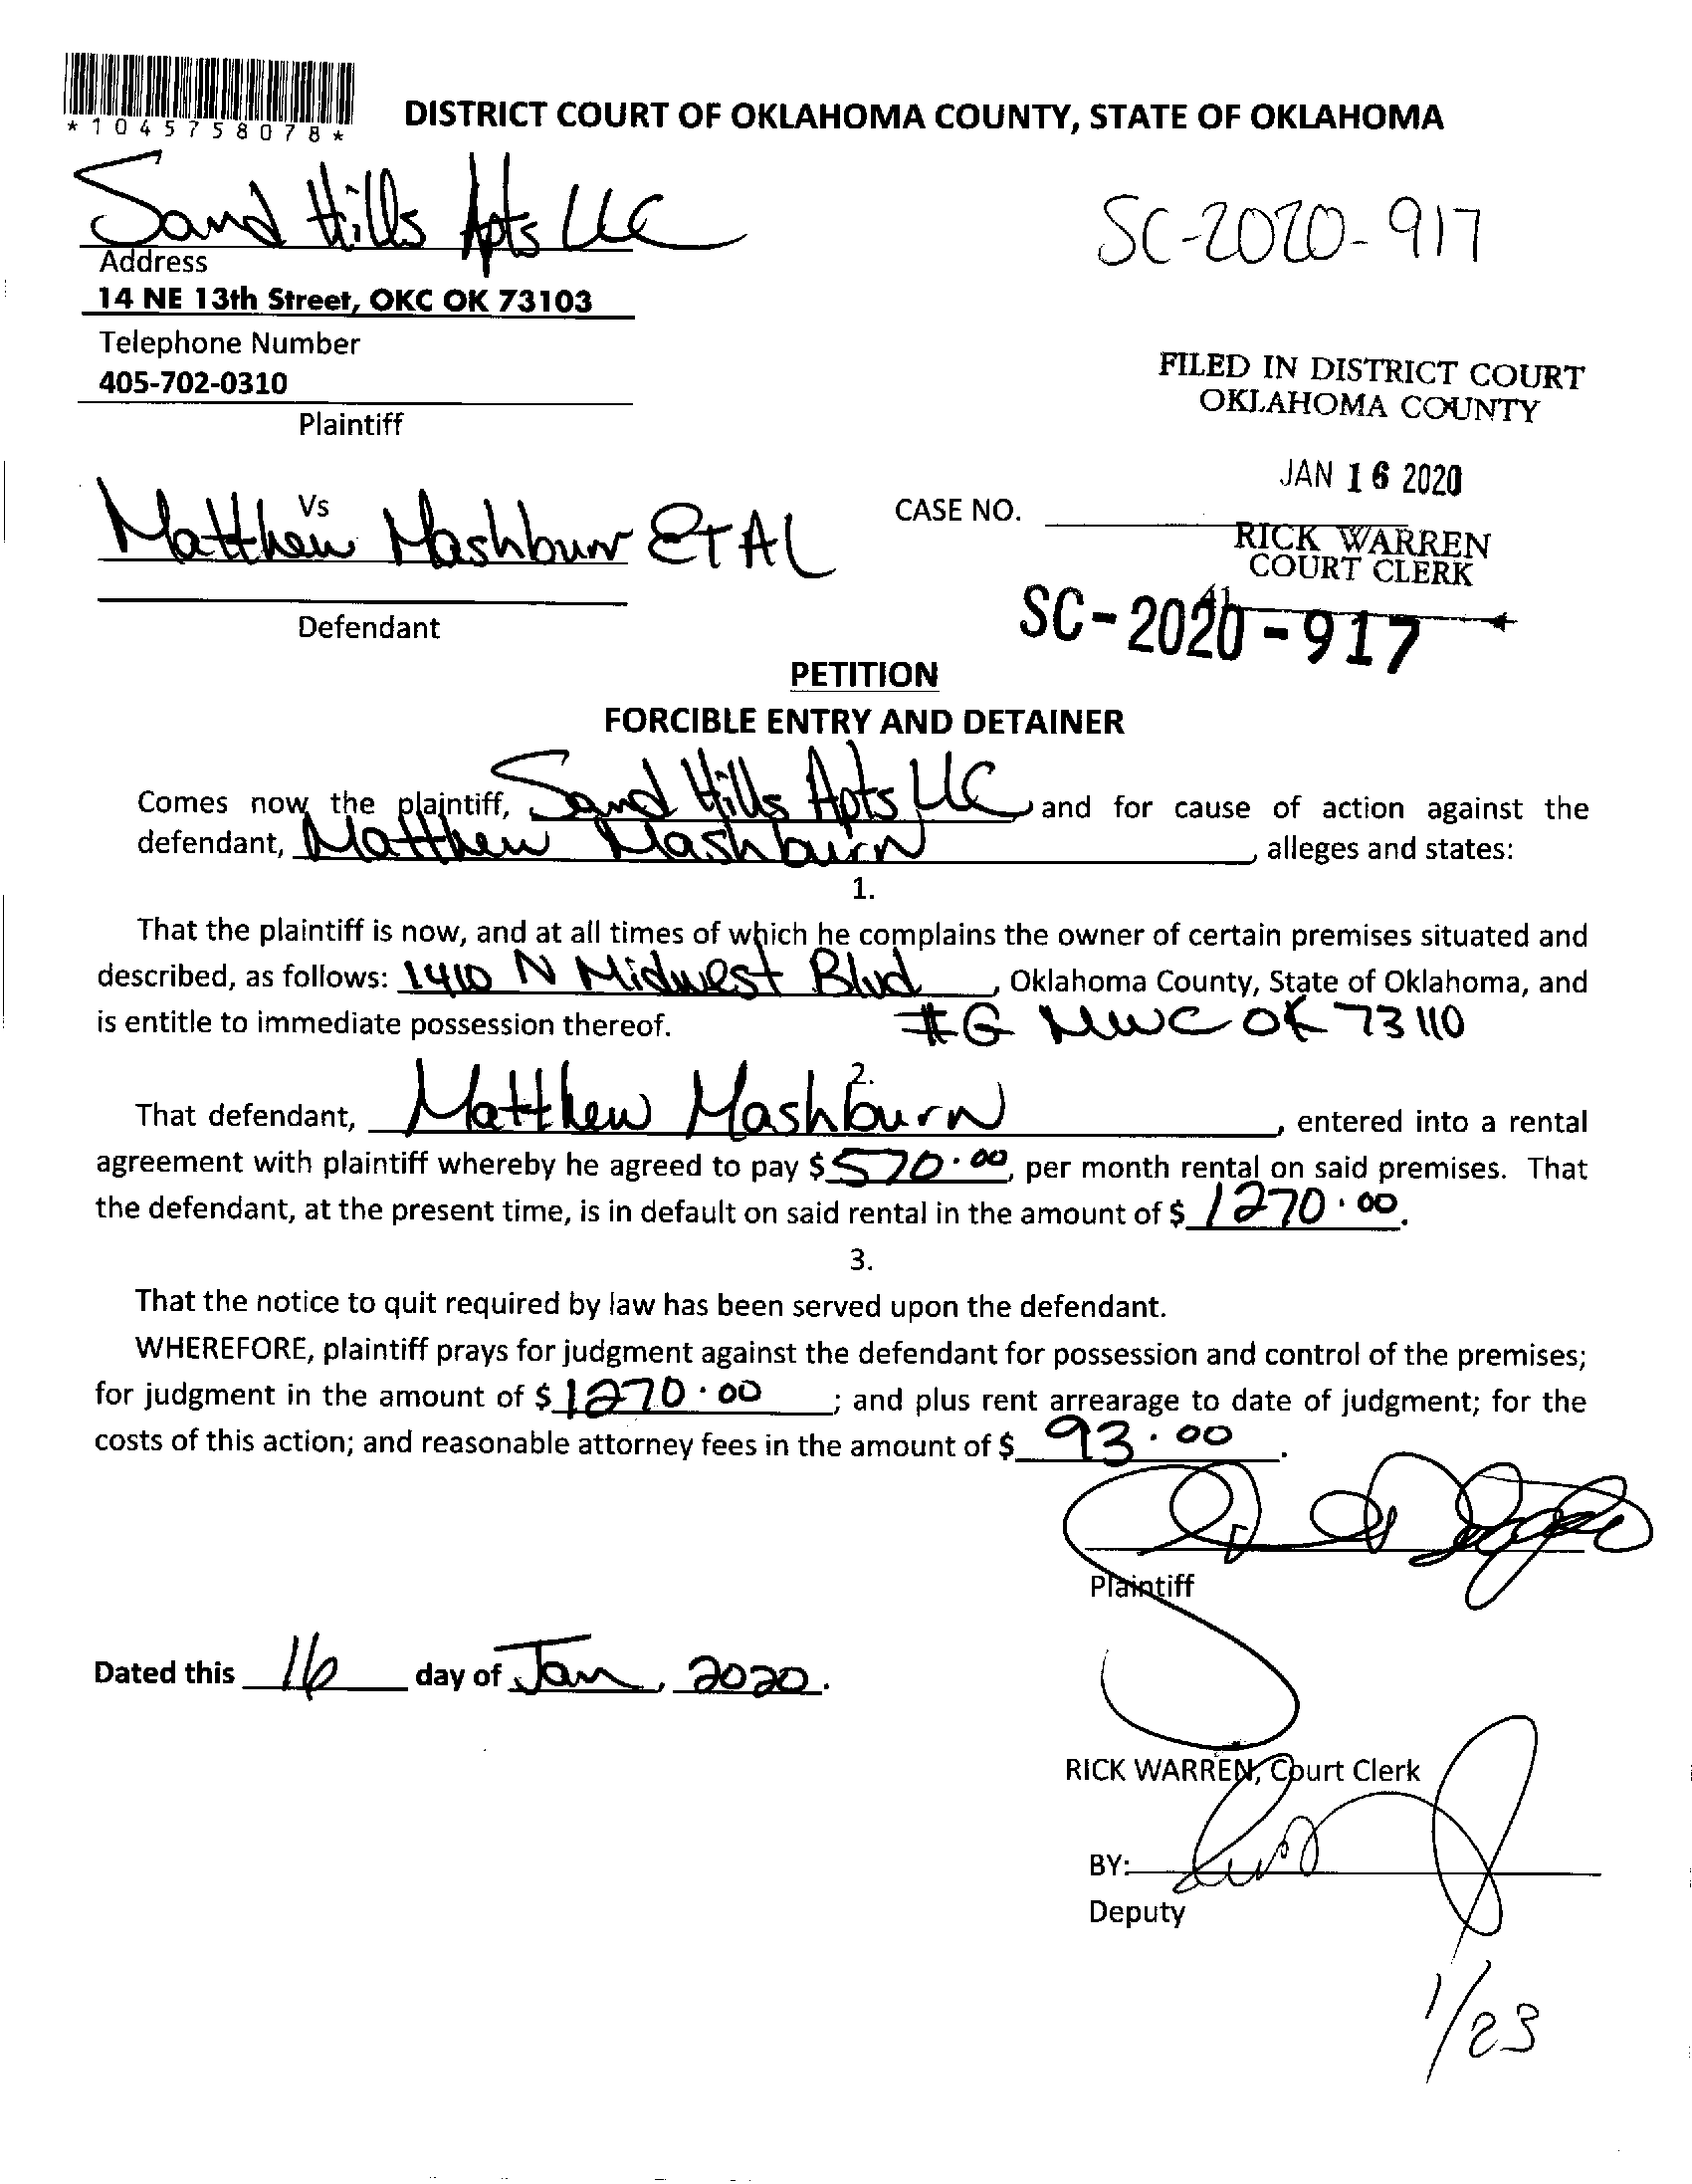 *1045758078*
DISTRICT COURT OF OKLAHOMA COUNTY, STATE OF OKLAHOMA
Sand Hills Apts LLC
SC-2020-917
Address
14 NE 13th Street, OKC OK 73103
Telephone Number
405-702-0310
Plaintiff
FILED IN DISTRICT COURT
OKLAHOMA COUNTY
JAN 16 2020
RICK WARREN
COURT CLERK
41
Vs
Matthew Mashburn ET AL
CASE NO.
SC-2020-917
Defendant
PETITION
FORCIBLE ENTRY AND DETAINER
Comes now the plaintiff, Sand Hills Apts LLC, and for cause of action against the
defendant, Matthew Mashburn, alleges and states:
1.
That the plaintiff is now, and at all times of which he complains the owner of certain premises situated and
described, as follows: 1410 N Midwest Blvd, Oklahoma County, State of Oklahoma, and
is entitle to immediate possession thereof. #G MWC OK 73110
2.
That defendant, Matthew Mashburn, entered into a rental
agreement with plaintiff whereby he agreed to pay $570.00, per month rental on said premises. That
the defendant, at the present time, is in default on said rental in the amount of $1270.00.
3.
That the notice to quit required by law has been served upon the defendant.
WHEREFORE, plaintiff prays for judgment against the defendant for possession and control of the premises;
for judgment in the amount of $1270.00; and plus rent arrearage to date of judgment; for the
costs of this action; and reasonable attorney fees in the amount of $93.00.
Plaintiff
Dated this 16 day of Jan, 2020.
RICK WARREN, Court Clerk
BY:
Deputy
1/23